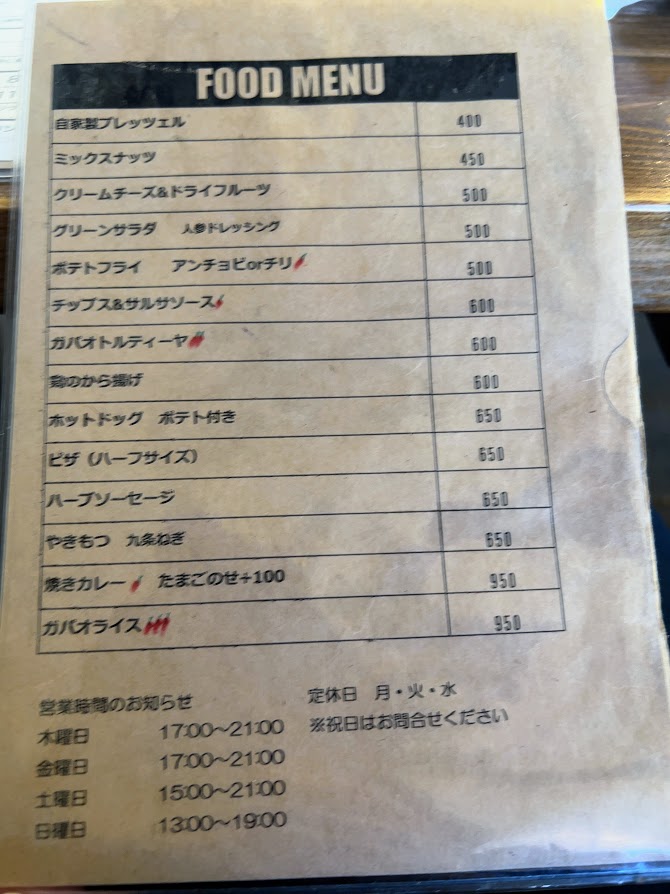 FOOD MENU
自家製プレッツェル 400
ミックスナッツ 450
クリームチーズ&ドライフルーツ 500
グリーンサラダ 人参ドレッシング 500
ポテトフライ アンチョビorチリ 500
チップス&サルサソース 600
ガパオトルティーヤ 600
鶏のから揚げ 600
ホットドッグ ポテト付き 650
ピザ（ハーフサイズ） 650
ハーブソーセージ 650
やきもつ 九条ねぎ 650
焼きカレー たまごのせ+100 950
ガパオライス 950
営業時間のお知らせ
木曜日 17:00〜21:00
金曜日 17:00〜21:00
土曜日 15:00〜21:00
日曜日 13:00〜19:00
定休日 月・火・水
※祝日はお問合せください